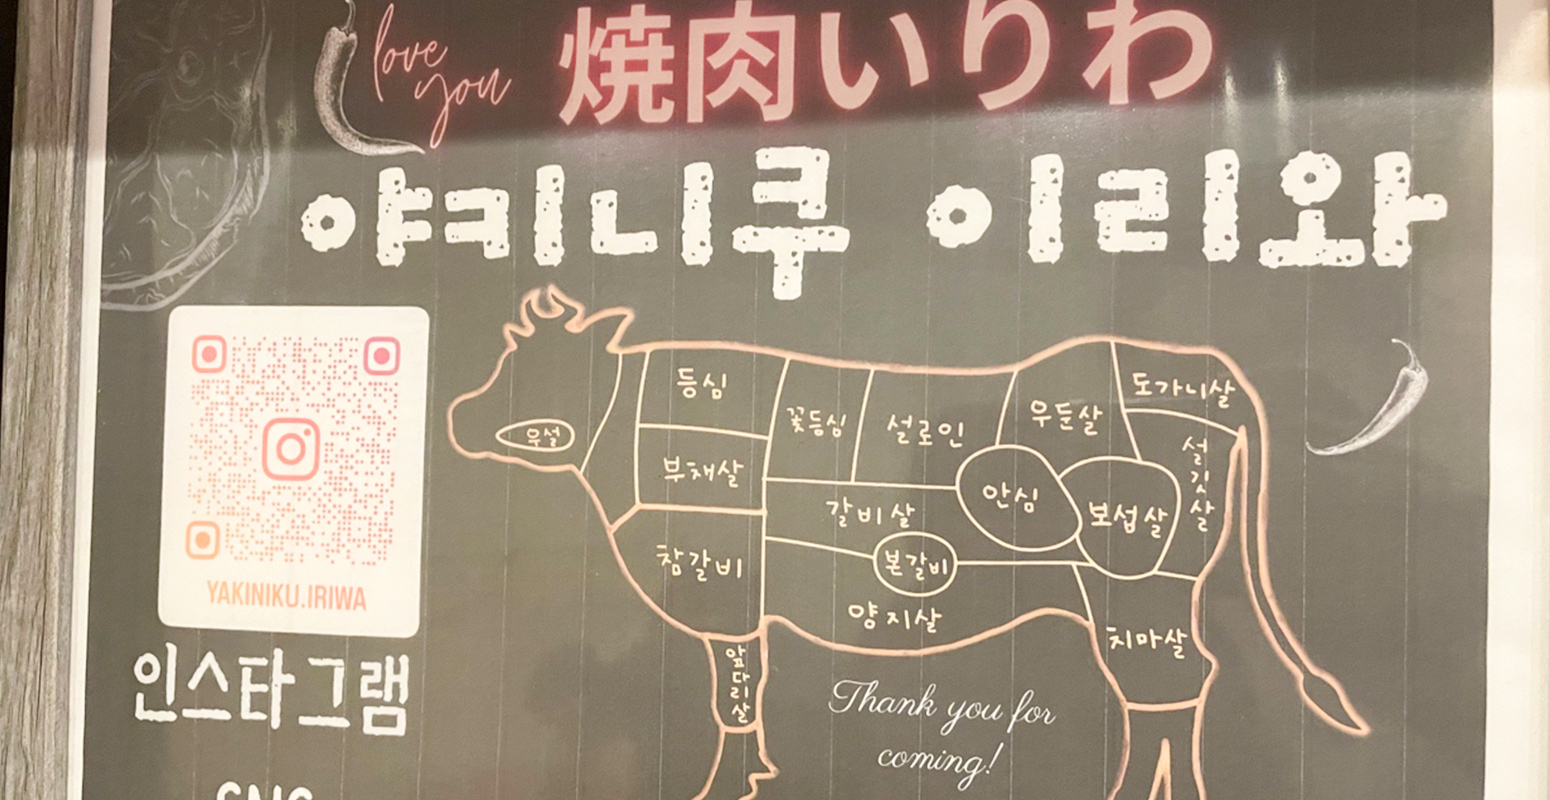 love
you
焼肉いりわ
야키니쿠 이리와
YAKINIKU.IRIWA
인스타그램
SNS
우설
등심
부채살
참갈비
앞다리살
꽃등심
설로인
갈비살
본갈비
양지살
안심
우둔살
보섭살
도가니살
설깃살
치마살
Thank you for
coming!